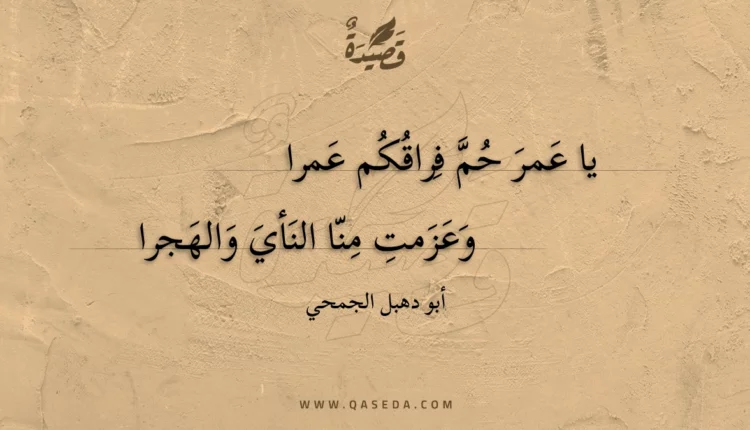 قَصِيدَةٌ
يا عَمرَ حُمَّ فِراقُكُم عَمرا
وَعَزَمتِ مِنّا النَأيَ وَالهَجرا
أبو دهبل الجمحي
WWW.QASEDA.COM